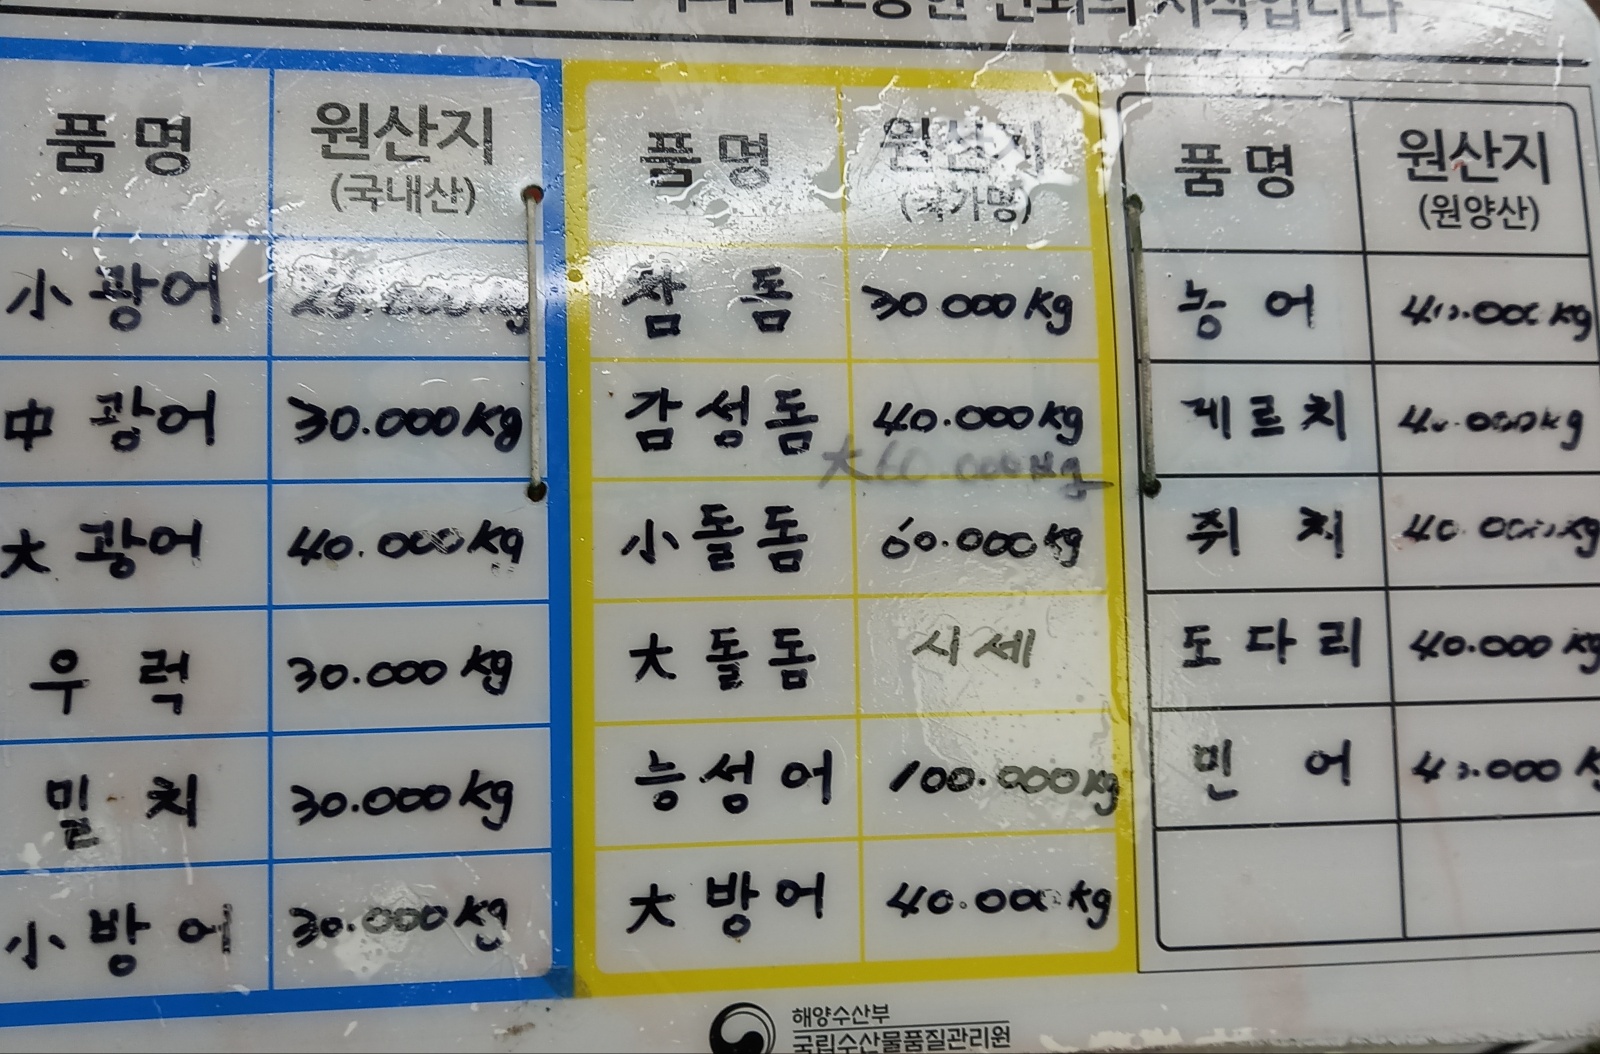 품명 원산지 (국내산)
小 광어 25.000kg
中 광어 30.000kg
大 광어 40.000kg
우럭 30.000kg
밀치 30.000kg
小 방어 30.000kg
품명 원산지 (국가명)
참돔 30.000kg
감성돔 40.000kg
大60.000kg
小 돌돔 60.000kg
大 돌돔 시세
능성어 100.000kg
大 방어 40.000kg
품명 원산지 (원양산)
농어 40.000kg
게르치 40.000kg
쥐치 40.000kg
도다리 40.000kg
민어 40.000K
해양수산부
국립수산물품질관리원